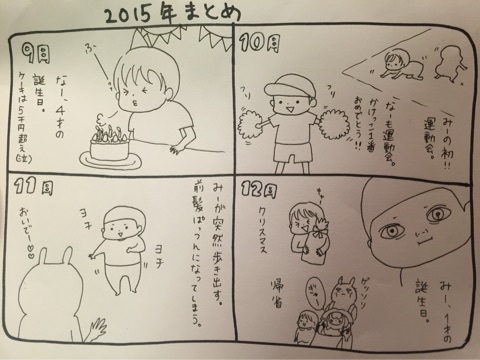 2015年まとめ
9月
ふー
なー、4才の
誕生日。
ケーキは5千円超え(泣)
10月
みーの初!!
運動会。
フリ
フリ
なーも運動会。
かけっこ1番
おめでとう!!
11月
みーが突然歩き出す。
前髪ぱっつんになってしまう。
ヨチ
ヨチ
おいでー♡♡
12月
みー、1才の
誕生日。
クリスマス
帰省
ゲッソリ